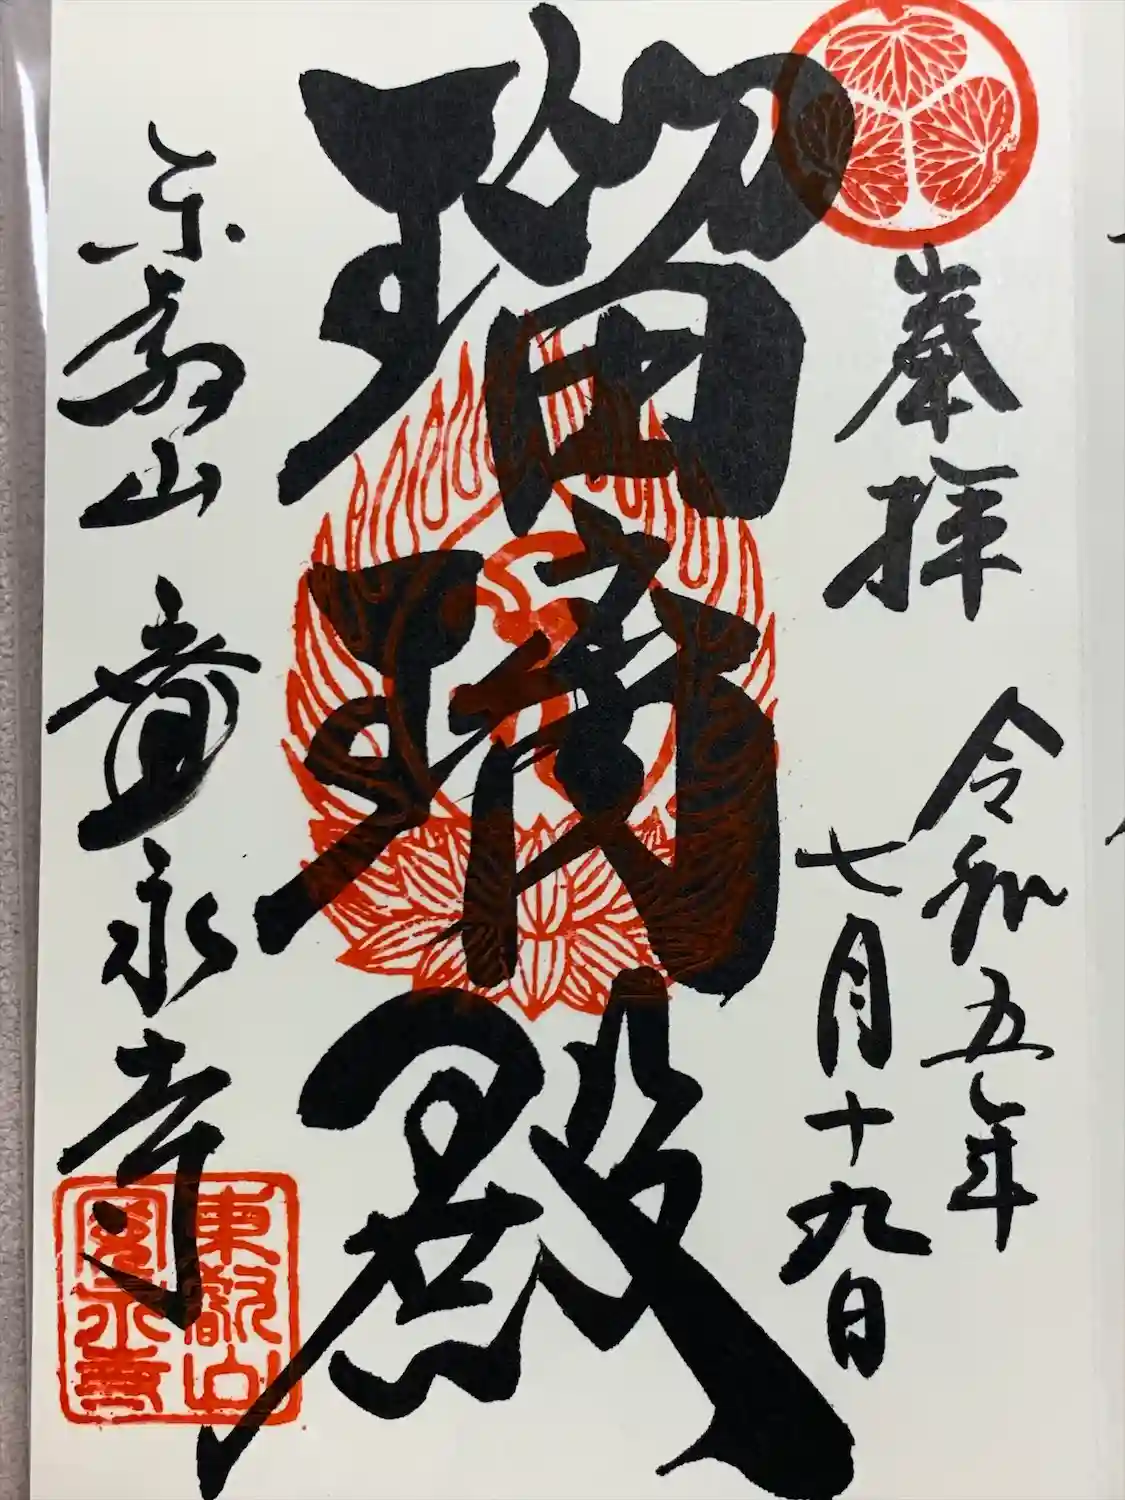 奉拝
令和五年
七月十九日
瑠璃殿
東叡山 寛永寺
東叡山
寛永寺